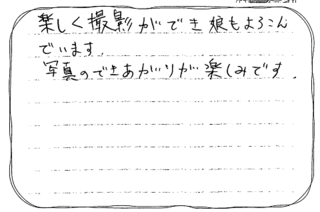 楽しく撮影ができ娘もよろこん
でいます.
写真のできあがりが楽しみです.